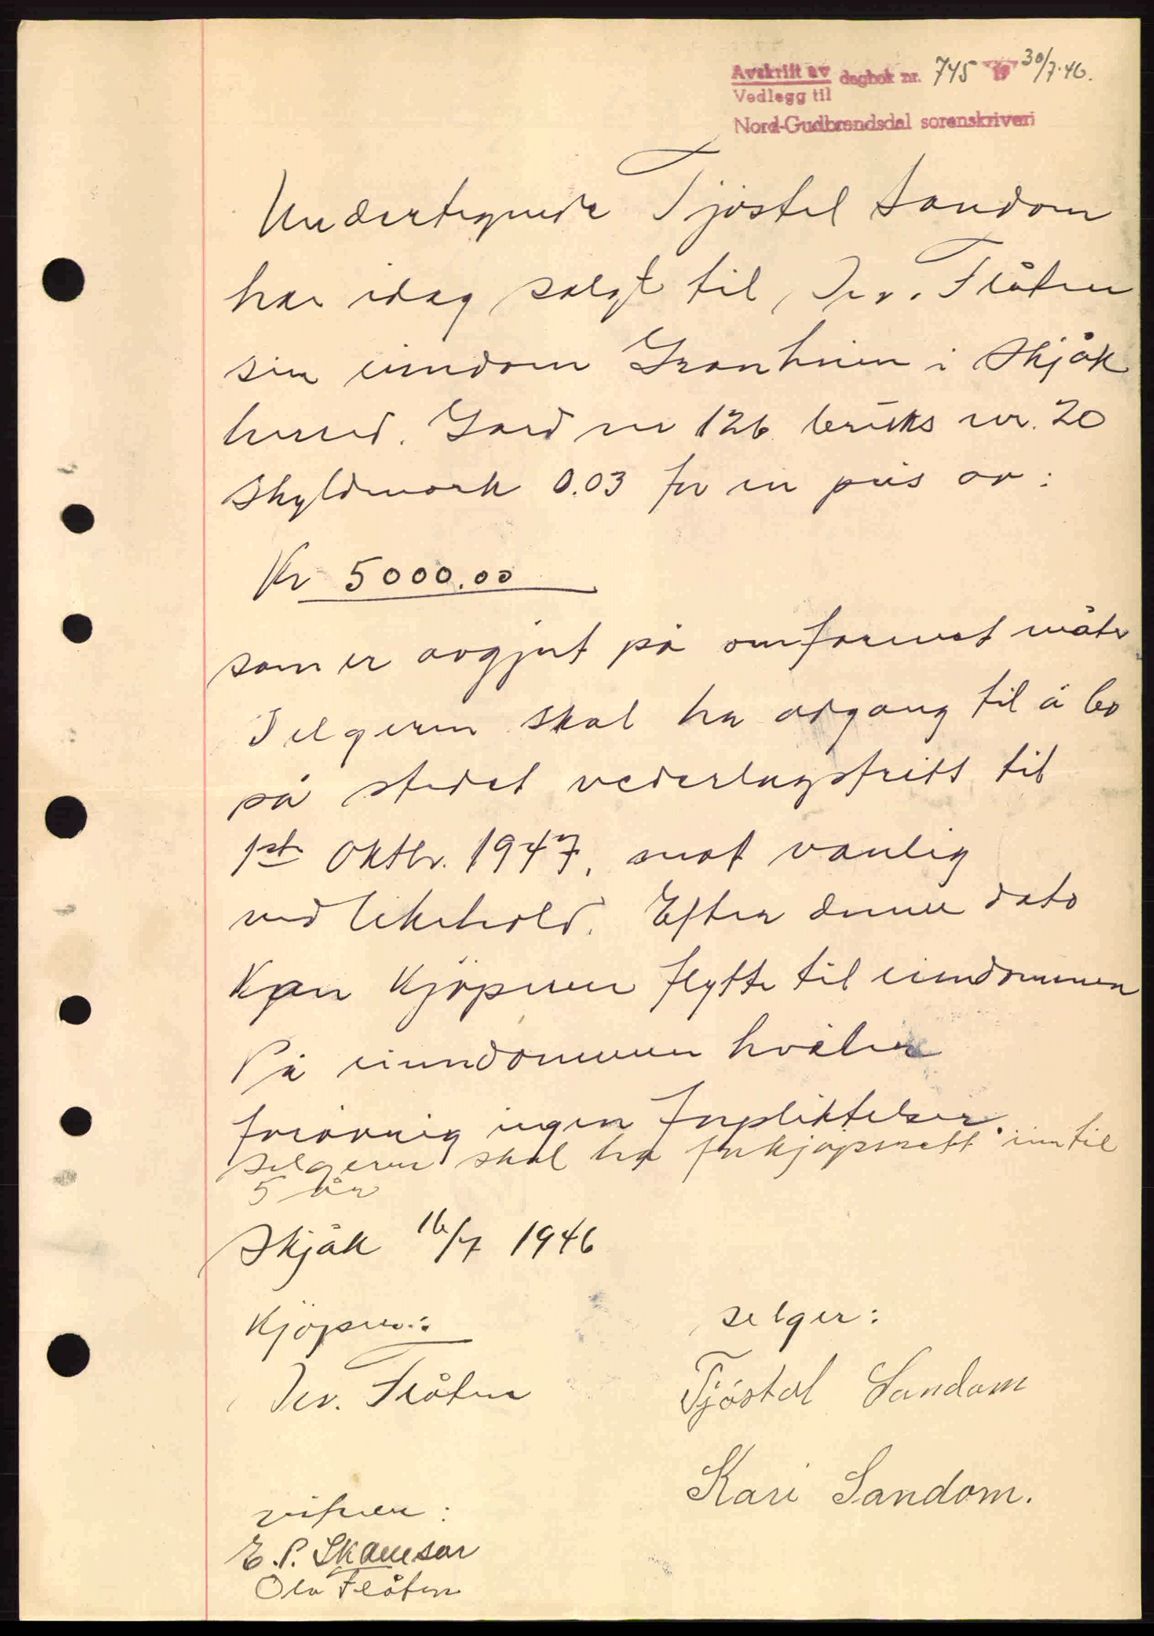 Avskrift av dagbok nr. 745 19 30/7-46.
Vedlegg til
Nord-Gudbrandsdal sorenskriveri
Undertegnede Tjøstel Sandom
har idag solgt til, Flåten
sin eiendom Granheim i Skjåk
herred. Gard nr 126 bruks nr. 20
Skyldmark 0.03 for en pris av:
Kr 5000.00
som er avgjort på omforenet måte
Selgeren skal ha adgang til å bo
på stedet vederlagsfritt til
1ste Oktbr. 1947, mot vanlig
vedlikehold. Efter denne dato
kan kjöperen flytte til eiendommen
På eiendommen hviler
forøvrig ingen forpliktelser.
selgeren skal ha forkjøpsrett inntil
5 år
Skjåk 16/7 1946
Kjöper: selger:
Flåten Tjöstel Sandom
Kari Sandom.
vitner:
E. P. Skamsar
Ola Flåten